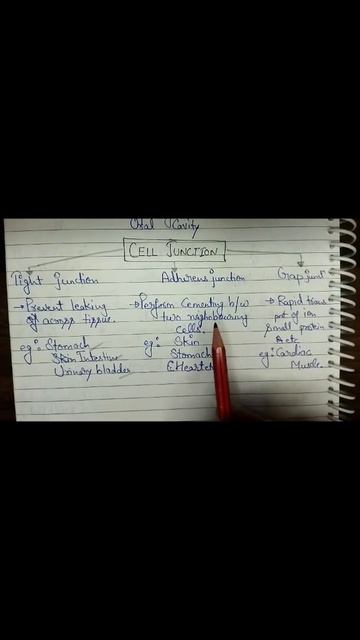 Oral Cavity
CELL JUNCTION
Tight Junction
→ Prevent leaking
of across tissue.
eg: Stomach
Skin Intestine
Urinary bladder
Adherens junction
→ Perform Cementing b/w
two neghobouring
cells.
eg: Skin
Stomach
Gap junt
→ Rapid trans
port of ion
small protein
etc
eg: Cardiac
Muscle.